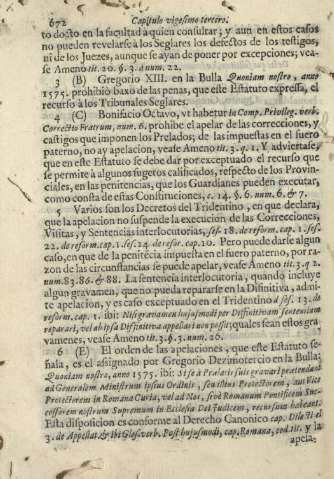 672 Capitulo vigesimo tercero.
to docto en la facultad à quien consultar; y aun en estos casos
no pueden revelarse à los Seglares los defectos de los testigos,
ni de los Juezes, aunque se ayan de poner por excepciones; vea-
se Ameno tit. 20. §. 3. num. 22.
3 (B) Gregorio XIII. en la Bulla Quoniam nostro, anno
1575. prohibiò baxo de las penas, que este Estatuto expressa, el
recurso à los Tribunales Seglares.
4 (C) Bonifacio Octavo, vt habetur in Comp. Privileg. verb.
Correctio Fratrum, num. 6. prohibe el apelar de las correcciones, y
castigos que imponen los Prelados; de las impuestas en el fuero
paterno, no ay apelacion, vease Ameno tit. 3. q. 1. Y adviertase,
que en este Estatuto se debe dar por exceptuado el recurso que
se permite à algunos sugetos calificados, respecto de los Provin-
ciales, en las penitencias, que los Guardianes pueden executar,
como consta de estas Constituciones, c. 14. §. 6. num. 6. & 7.
5 Varios son los Decretos del Tridentino, en que declara,
que la apelacion no suspende la execucion de las Correcciones,
Visitas, y Sentencias interlocutorias, ses. 18. de reform. cap. 1. ses.
22. de reform. cap. 1. ses. 24. de refor. cap. 10. Pero puede darle algun
caso, en que de la penitẽcia impuesta en el fuero paterno, por ra-
zon de las circunstancias se puede apelar, vease Ameno tit. 3. q. 2.
num. 83. 86. & 88. La sentencia interlocutoria, quando incluye
algun gravamen, que no pueda repararse en la Disinitiva, admi-
te apelacion, y es caso exceptuado en el Tridentino d ses. 13. de
reform. cap. 1. ibi: Nisi gravamen hujusmodi per Disinitivam sententiam
reparari, vel ab ipsa Disinitiva appellari non possit; quales sean estos gra-
vamenes, vease Ameno tit. 3. q. 3. num. 26.
6 (E) El orden de las apelaciones, que este Estatuto se-
ñala, es el assignado por Gregorio Dezimotercio en la Bulla:
Quoniam nostro, anno 1575. ibi: Si se à Prælatis suis gravari prætendant
ad Generalem Ministrum ipsius Ordinis, seu illius Protectorem, aut Vice
Protectorem in Romana Curia, vel ad Nos, sivè Romanum Pontificem Suc-
cessorem nostrum Supremum in Ecclesia Dei Judicem, recursum habeant.
Esta disposicion es conforme al Derecho Canonico cap. Dilecti el
3. de Appellat. & ibi Glos. verb. Post hujusmodi, cap. Romana, eod. tit. y la
apela-